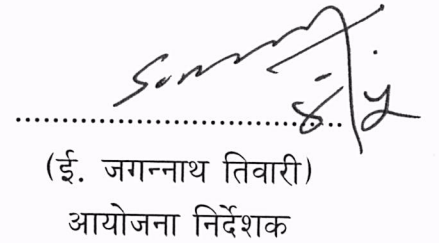 (ई. जगन्नाथ तिवारी)
आयोजना निर्देशक